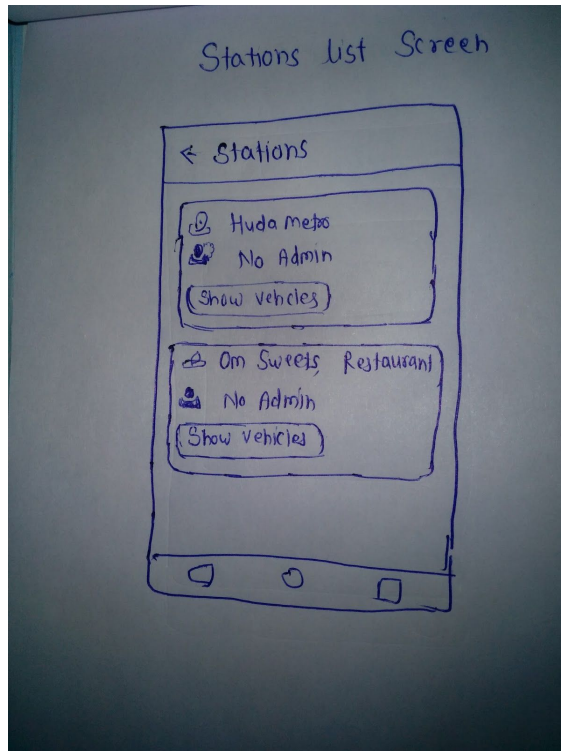 Stations list Screen
← Stations
Huda Metro
No Admin
Show vehcles
Om Sweets, Restaurant
No Admin
Show Vehicles